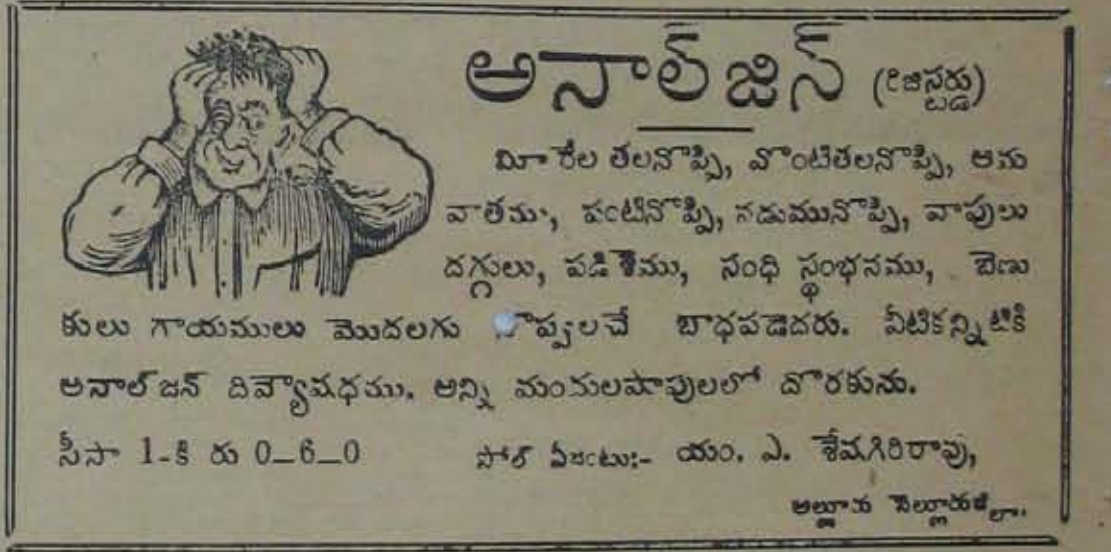 అనాల్‌జిన్ (రిజిస్టర్డు)
మీ రేల తలనొప్పి, వొంటితలనొప్పి, ఆమ
వాతము, పంటినొప్పి, నడుమునొప్పి, వాపులు
దగ్గులు, పడిశెము, సంధి స్థంభనము, బెణు
కులు గాయములు మొదలగు నొప్పులచే బాధపడెదరు. వీటికన్నిటికి
అనాల్‌జిన్ దివ్యౌషధము. అన్ని మందులషాపులలో దొరకును.
సీసా 1-కి రు 0—6—0 సోల్ ఏజంటు:- యం. ఎ. శేషగిరిరావు,
అల్లూరు నెల్లూరుజిల్లా.